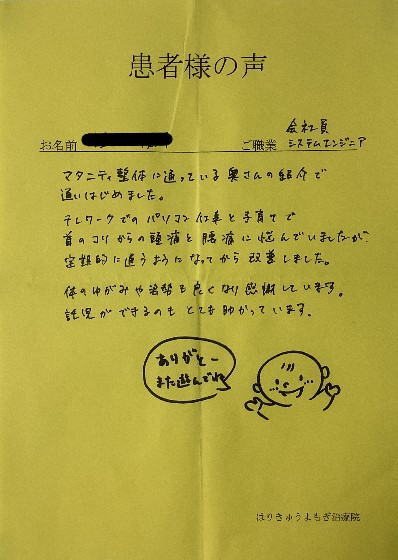 患者様の声
会社員
お名前 ご職業 システムエンジニア
マタニティ整体に通っている奥さんの紹介で
通いはじめました。
テレワークでのパソコン仕事と子育てで
首のコリからの頭痛と腰痛に悩んでいましたが、
定期的に通うようになってから改善しました。
体のゆがみや姿勢も良くなり感謝しています。
託児ができるのもとても助かっています。
ありがとー
また遊んでね
はりきゅうよもぎ治療院